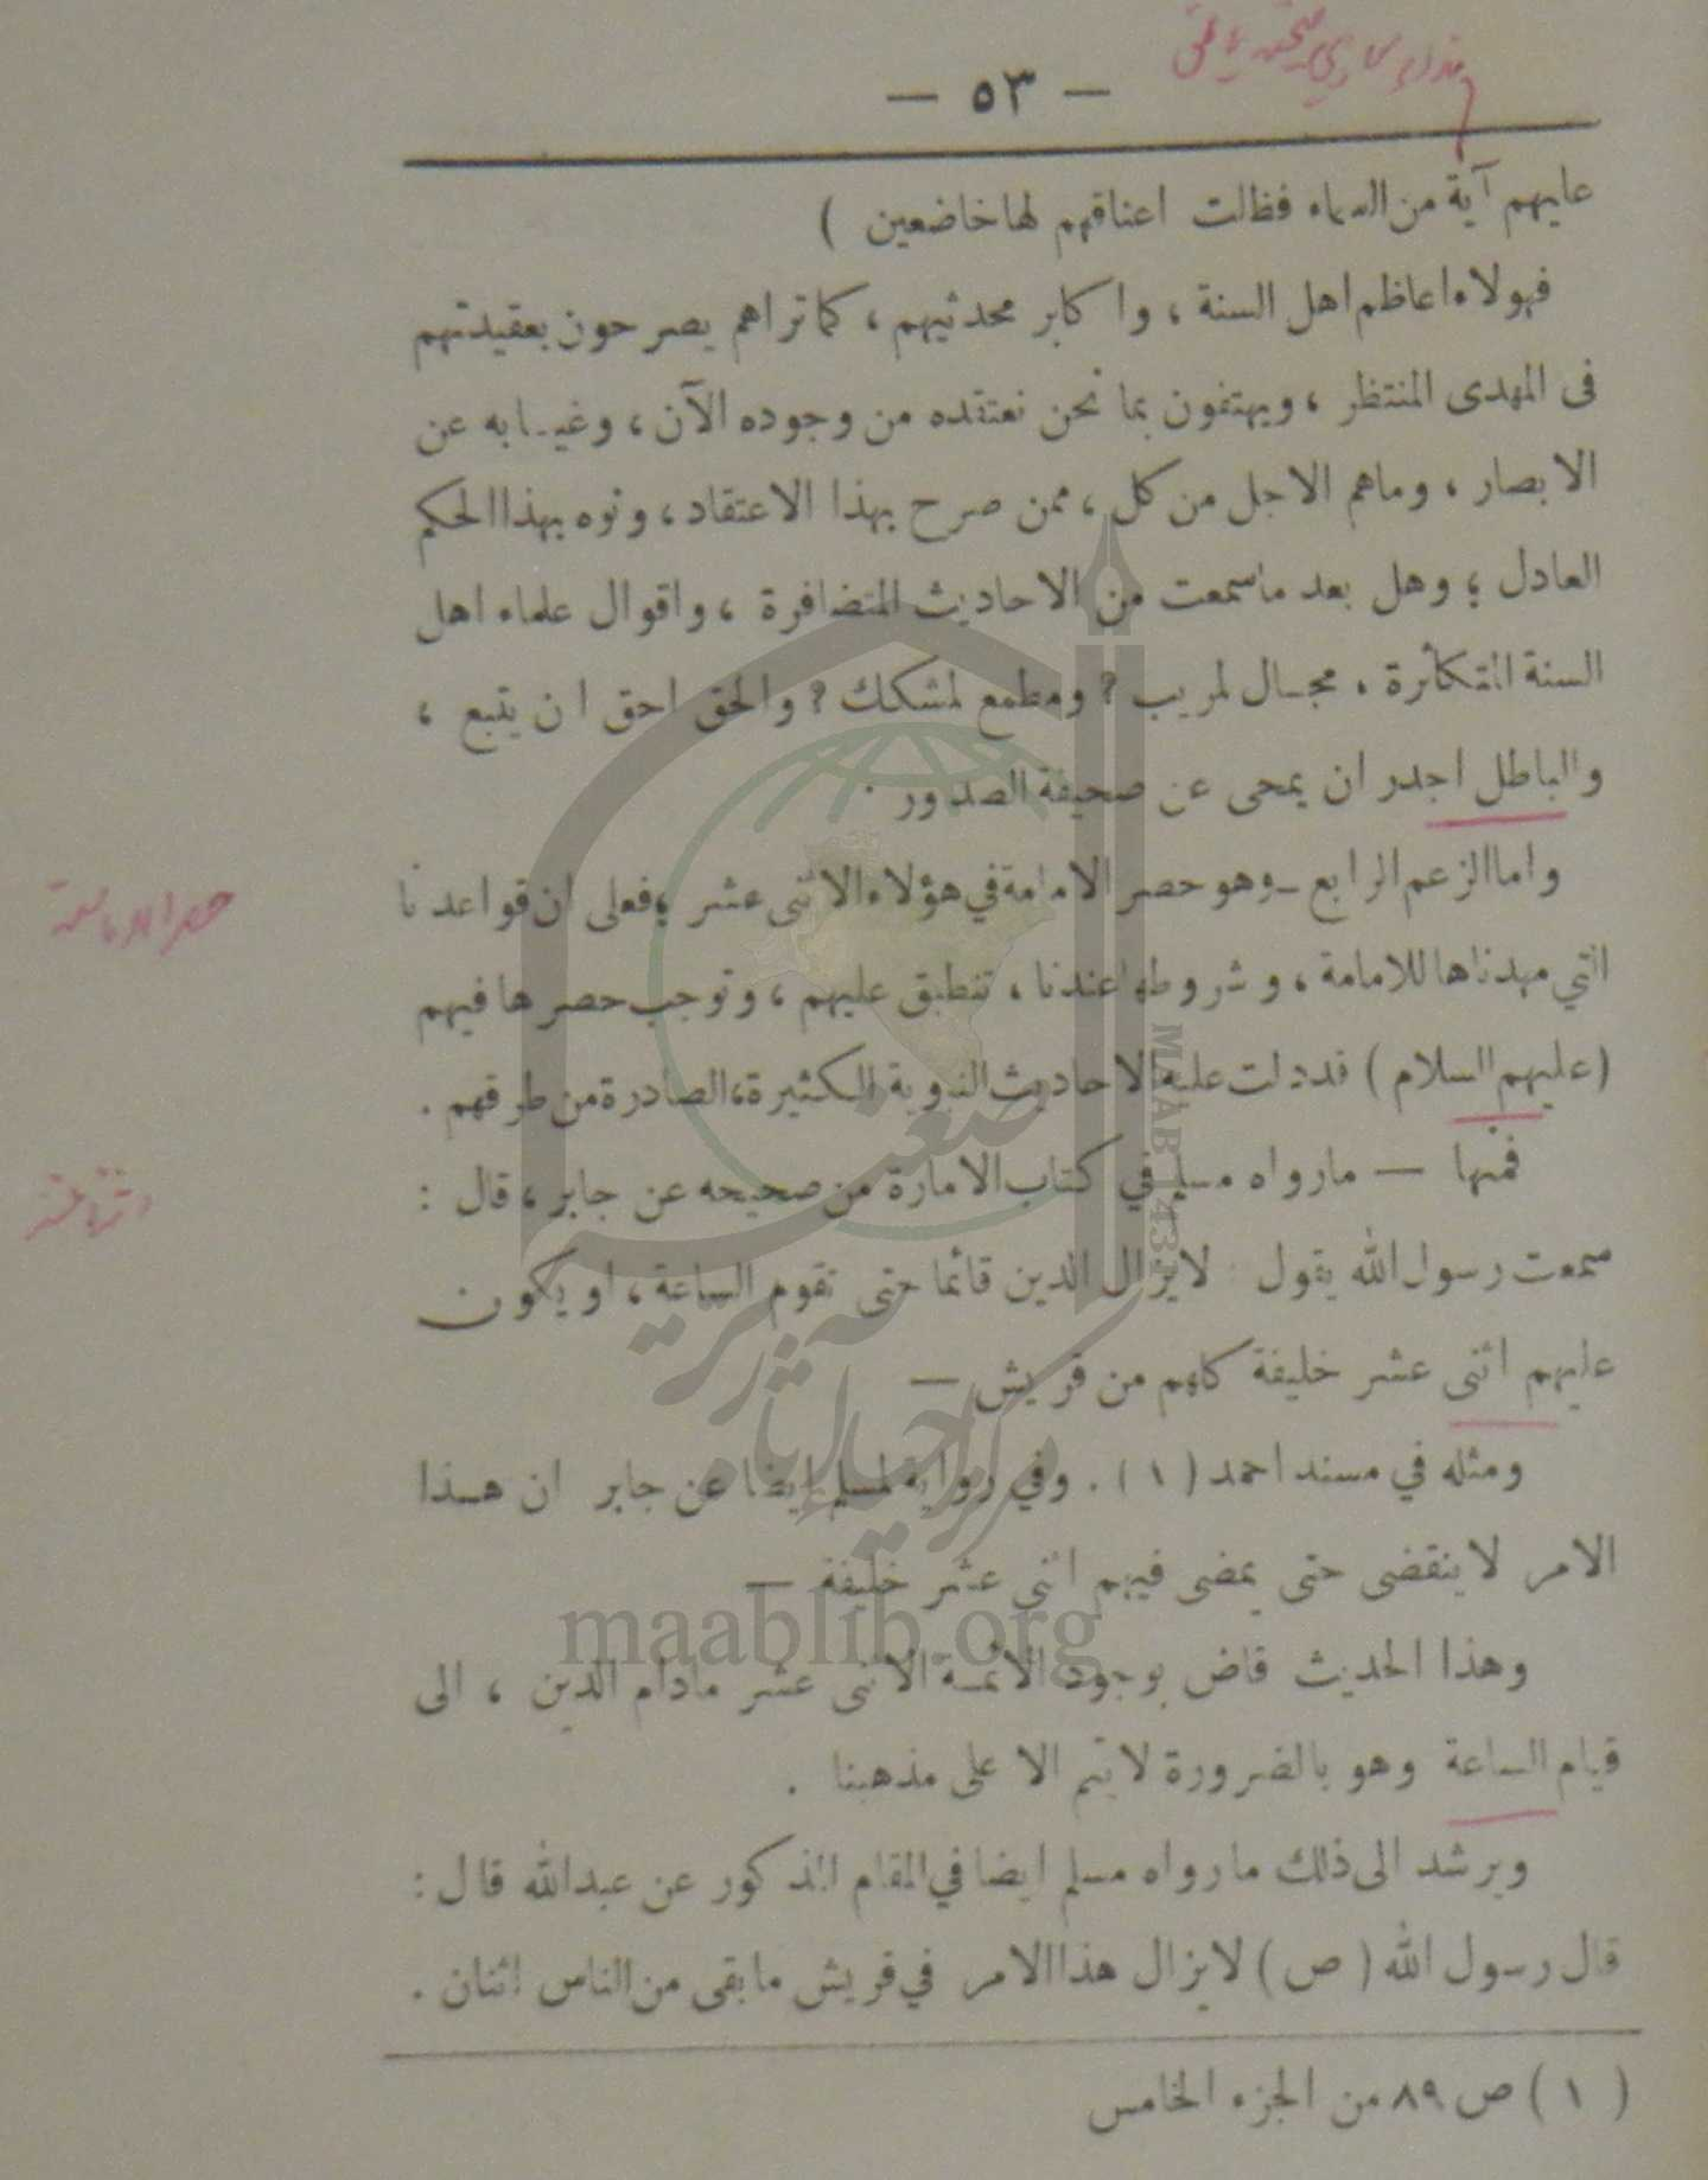 — ٥٣ —
عليهم آية من السماء فظلت اعناقهم لها خاضعين )
فهولاء اعاظم اهل السنة ، واكابر محدثيهم ، كما تراهم يصرحون بعقيدتهم
فى المهدى المنتظر ، ويهتفون بما نحن نعتقده من وجوده الآن ، وغيابه عن
الابصار ، وماهم الاجل من كل ، ممن صرح بهذا الاعتقاد ، ونوه بهذا الحكم
العادل ؛ وهل بعد ماسمعت من الاحاديث المتضافرة ، واقوال علماء اهل
السنة المتكاثرة ، مجال لمريب ? ومطمع لمشكك ? والحق احق ان يتبع ،
والباطل اجدر ان يمحى عن صحيفة الصدور .
واما الزعم الرابع ـ وهو حصر الامامة في هؤلاء الاثنى عشر ؛ فعلى ان قواعدنا
التي مهدناها للامامة ، وشروطها عندنا ، تنطبق عليهم ، وتوجب حصرها فيهم
(عليهم السلام) قد دلت عليه الاحاديث النبوية الكثيرة ، الصادرة من طرقهم .
فمنها — مارواه مسلم في كتاب الامارة من صحيحه عن جابر ، قال :
سمعت رسول الله يقول لايزال الدين قائما حتى تقوم الساعة ، او يكون
عليهم اثنى عشر خليفة كلهم من قريش —
ومثله في مسند احمد (١) . وفي رواية لمسلم ايضا عن جابر ان هذا
الامر لاينقضى حتى يمضى فيهم اثنى عشر خليفة —
وهذا الحديث قاض بوجود الائمة الاثنى عشر مادام الدين ، الى
قيام الساعة وهو بالضرورة لايتم الا على مذهبنا .
ويرشد الى ذلك مارواه مسلم ايضا في المقام المذكور عن عبدالله قال :
قال رسول الله (ص) لايزال هذا الامر في قريش مابقى من الناس اثنان .
(١) ص ٨٩ من الجزء الخامس
maablib.org
MAAB 1431